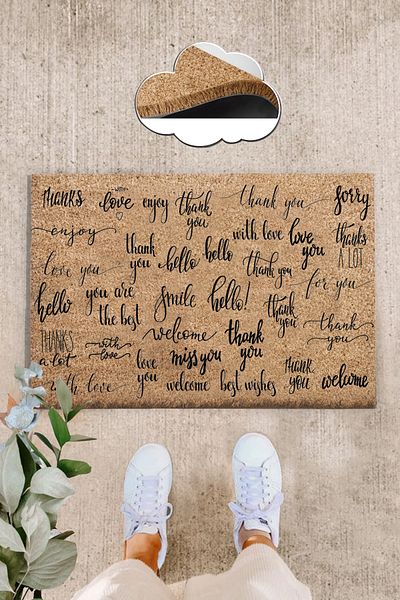 THANKS
with
love
enjoy
thank
you
thank you
sorry
enjoy
thank
you
hello
hello
with love
love
you
thanks
A LOT
love you
thank you
for you
hello
you are
the best
smile
hello!
thank
you
THANKS
a lot
with
love
welcome
thank
you
thank
you
love
you
miss you
with love
welcome
best wishes
THANK
YOU
welcome